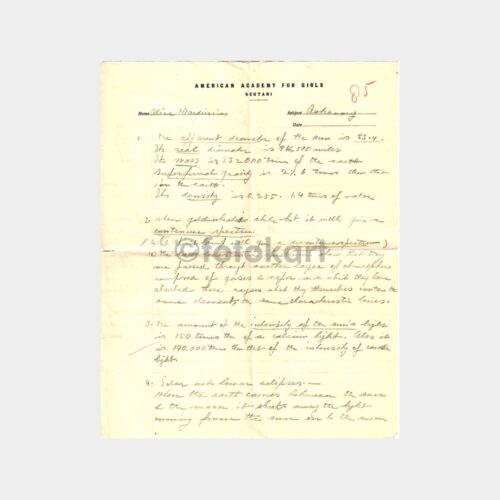 AMERICAN ACADEMY FOR GIRLS
SCUTARI
85
Name Alice Subject Astronomy
Date
1. The apparent diameter of the sun is 33.4.
Its real diameter is 866,500 miles
Its mass is 332000 times of the earth
Superficial gravity is 27.6 times than that
on the earth.
Its density is 0.255. 1.4 times of water
2. When solid is it will give a
continuous spectrum.
©fotokart
are passed through another layer of atmosphere
composed of gases & vapor and which they have
absorbed these rayes and they themselves
same elements the same characteristic lines.
3. The amount of the intensity of the sun's light
is 150 times the of a calcium light. Also it
is 190,000 times that of the intensity of candle
light.
4. Solar and lunar eclipses.—
When the earth comes between the sun
& the moon it shuts away the light
coming from the sun on to the moon